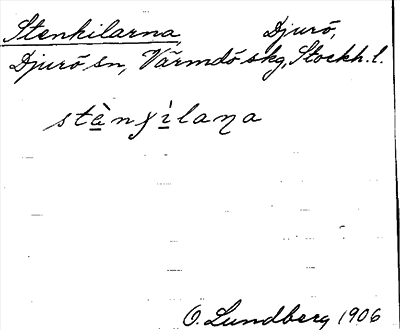 Stenkilarna, Djurö,
Djurö sn, Värmdö skg, Stockh. l.
stànʃìlaꞃa
O. Lundberg 1906